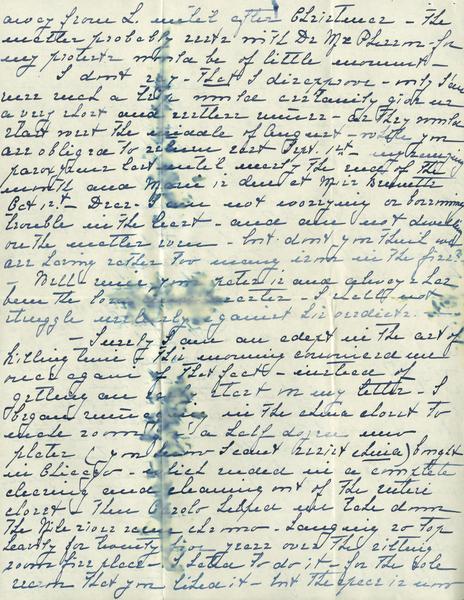 away from L. until after Christmas - The
matter probably rests with Dr McPherson - for
my protests would be of little moment -
I don't say - that I disapprove - only I am
sure such a trip would certainly give us
a very short and restless summer - as they would
start west the middle of August - while you
are obliged to return east Sept. 1st -
last until nearly the end of the
month and Marie is due at Miss Bennetts
Oct 1st - Dear I am not worrying or borrowing
trouble in the least - and am not dwelling
on the matter even - but don't you think we
are having rather too many irons in the fire?
Well - since your pater is and always has
been the - I shall not
struggle against his verdicts.
- Surely I am an adept in the art of
killing time. This morning convinced me
once again of that fact - instead of
getting an early start on my letter - I
began in the china closet to
make room for a half dozen new
plates (you know I can't resist china) bought
in Chicago - which ended in a complete
clearing and cleaning out of the entire
closet - Then helped me take down
The Nile river scene chromo - hanging so top
heavily for twenty four years over the sitting
room fire place - I hated to do it - for the sole
reason that you liked it - but the space is now